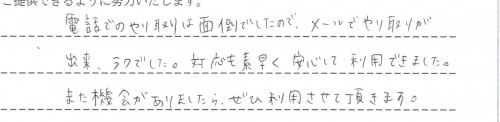 ご提供できるように努力いたします。
電話でのやり取りは面倒でしたので、メールでやり取りが
出来、ラクでした。対応も素早く安心して利用できました。
また機会がありましたら、ぜひ利用させて頂きます。